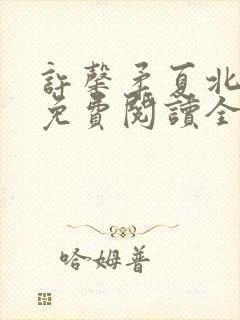 許馨矛夏北
免費閱讀全
哈姆普